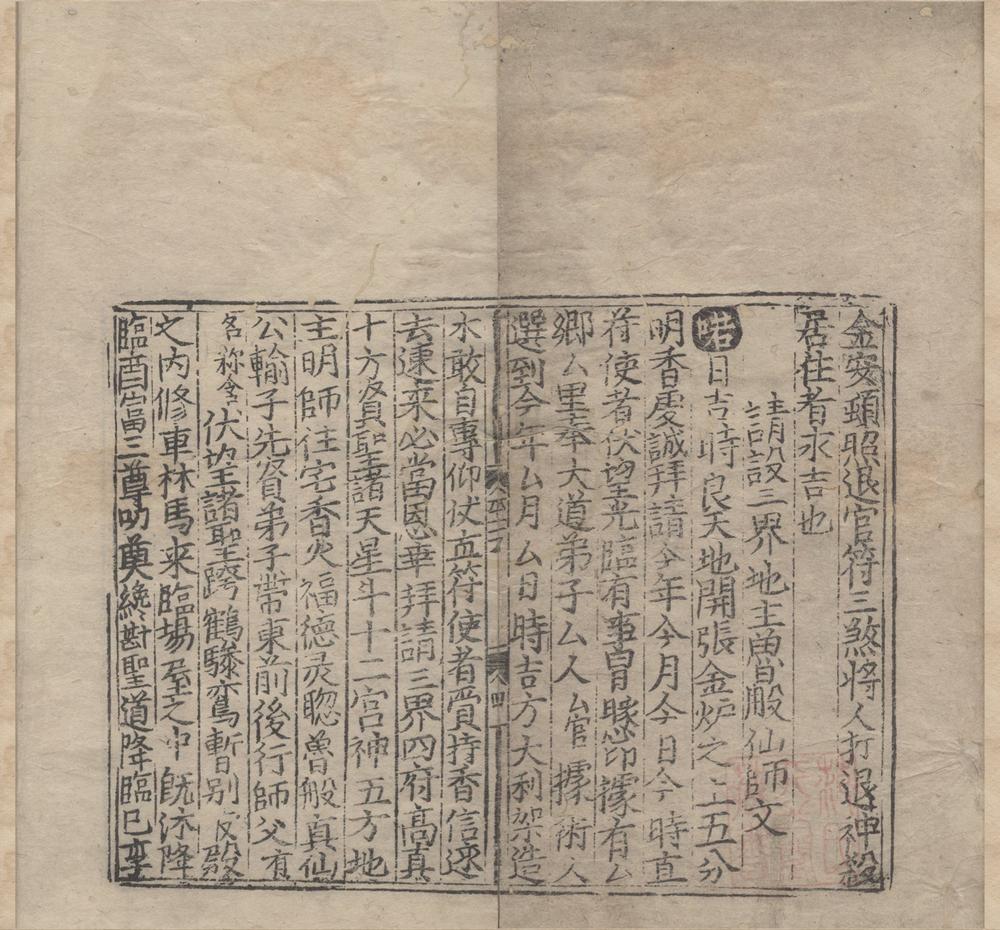 金安頓照退官符三煞将人打退神殺
居住者永吉也
請設三界地主魯般仙師文
日吉時良天地開張金炉之上五分
明香虔誠拜請今年今月今日今時直
符使者伏望光臨有事冒懇即據有厶
郷厶里奉大道弟子厶人厶官據術人
選到今年厶月厶日時吉方大利架造
木敢自專仰仗直符使者賫持香信速
去速来必當恩華拜請三界四府髙真
十方賢聖諸天星斗十二宫神五方地
主明師住宅香火福德灵聦魯般真仙
公輸子先賢弟子帶東前後行師父有
名称舎伏望諸聖跨鶴驂鸞暫别
之内修車林馬来臨塲屋之中既沐降
臨酉當三尊叨奠纔斟聖道降臨已享